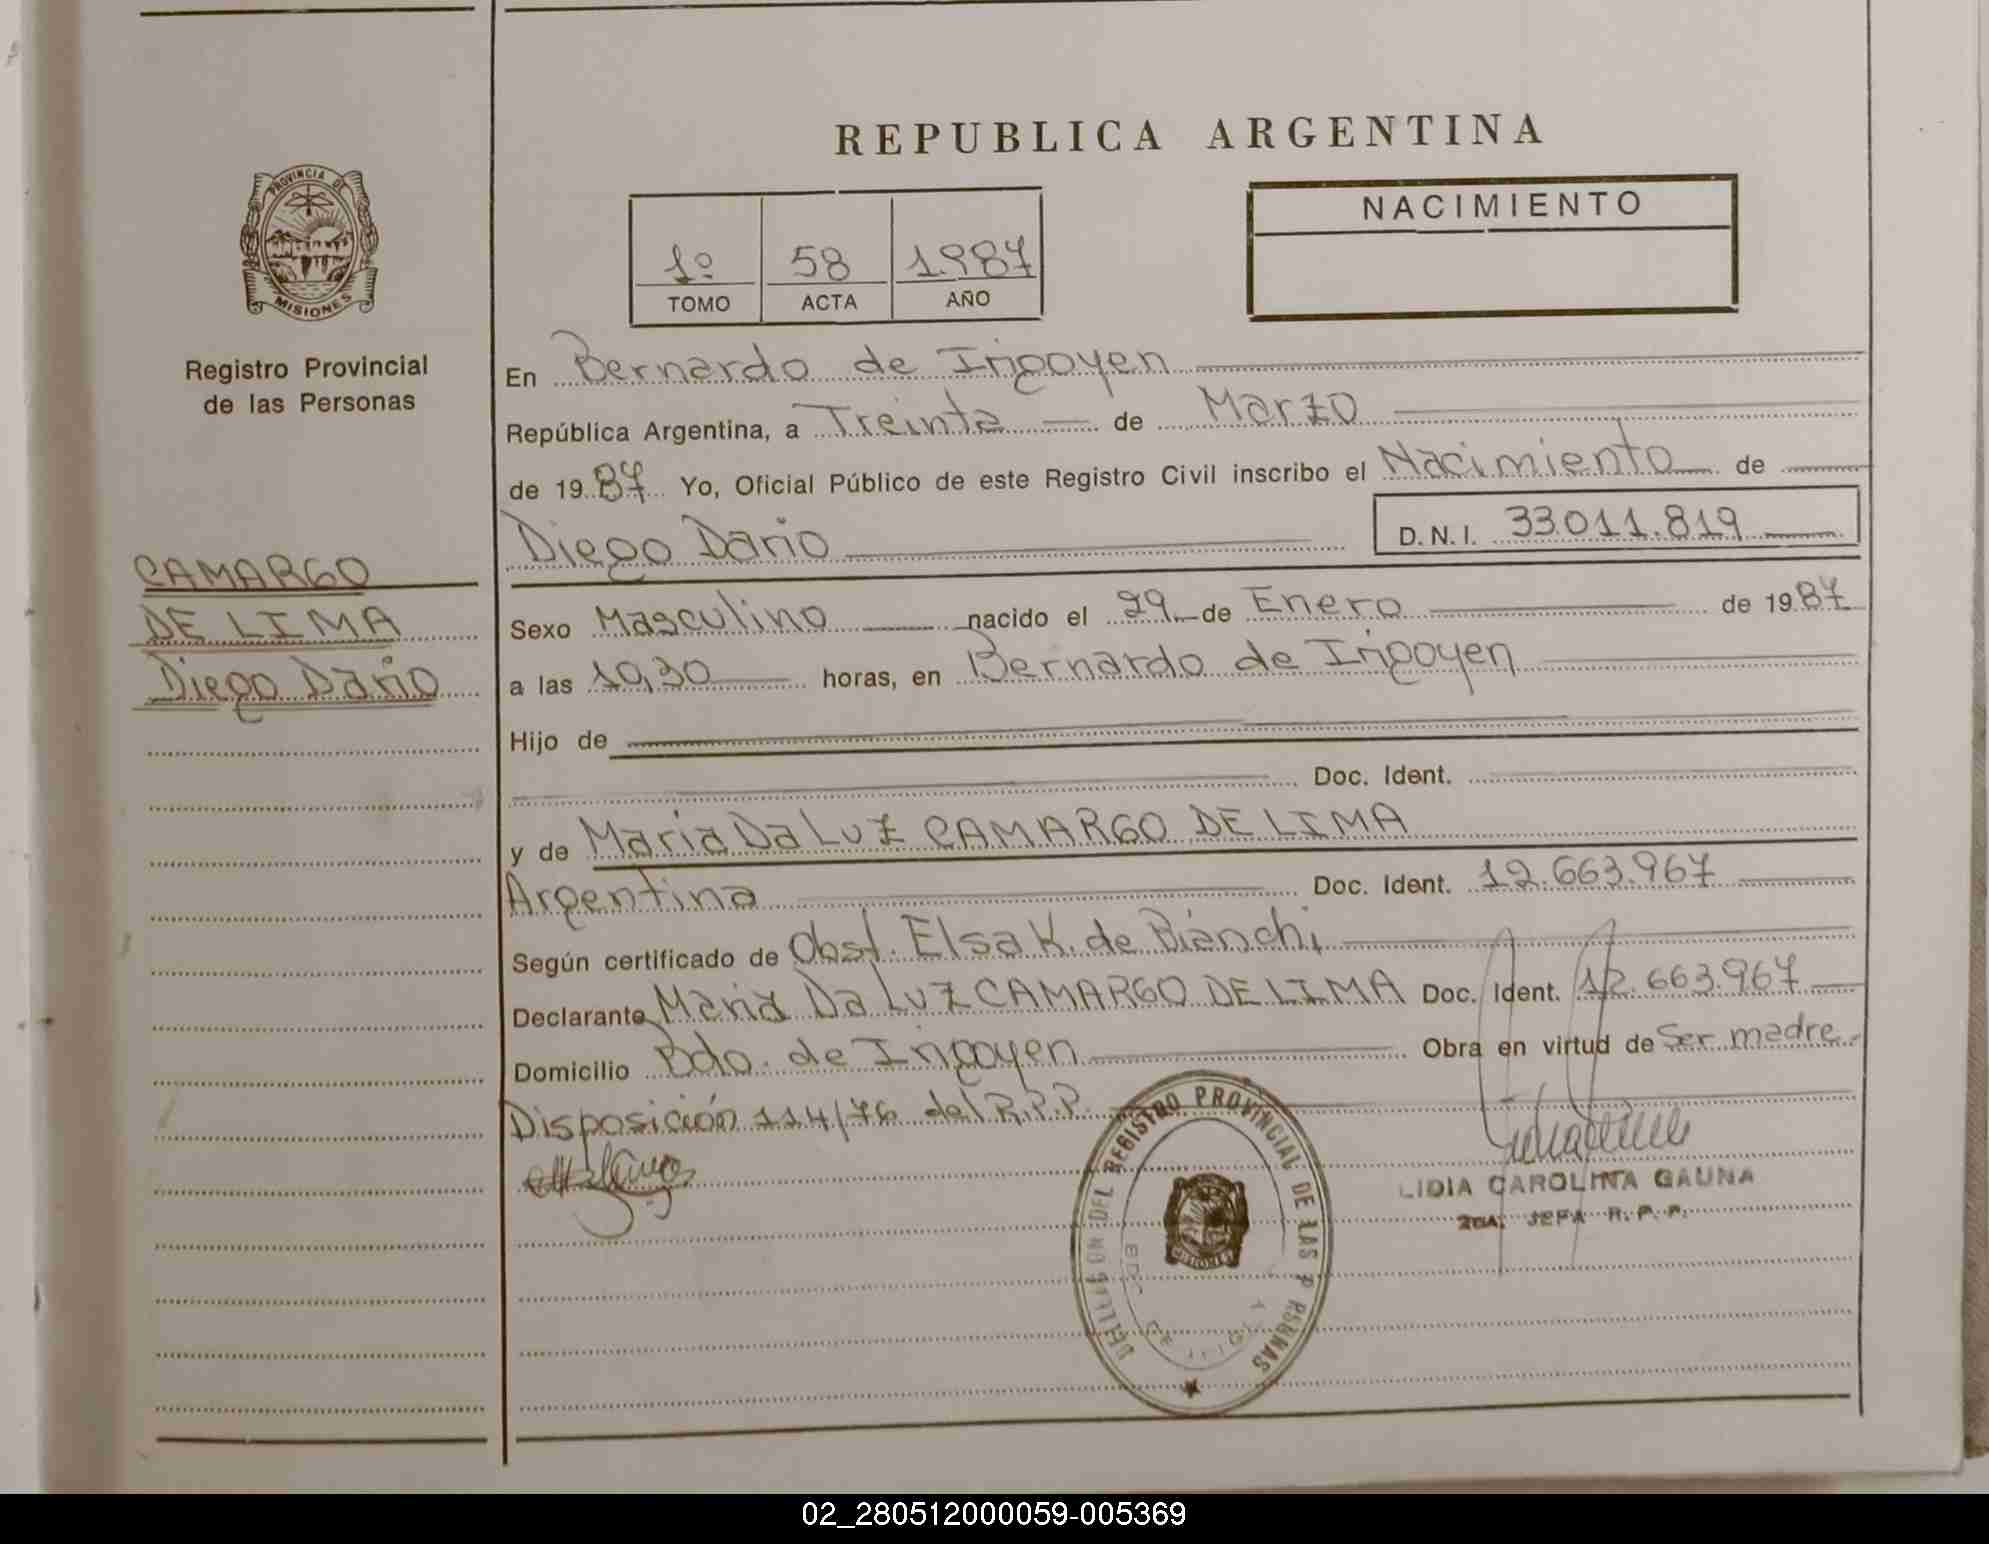 REPUBLICA ARGENTINA
PROVINCIA DE
MISIONES
Registro Provincial
de las Personas
1º 58 1987
TOMO ACTA AÑO
NACIMIENTO
CAMARGO
DE LIMA
Diego Dario
En Bernardo de Irigoyen
República Argentina, a Treinta de Marzo
de 1987 Yo, Oficial Público de este Registro Civil inscribo el Nacimiento de
Diego Dario D.N.I. 33.011.819
Sexo Masculino nacido el 29 de Enero de 1987
a las 10,30 horas, en Bernardo de Irigoyen
Hijo de
Doc. Ident.
y de Maria Da Luz CAMARGO DE LIMA
Argentina Doc. Ident. 12.663.967
Según certificado de Obst. Elsa K. de Bianchi
Declarante Maria Da Luz CAMARGO DE LIMA Doc. Ident. 12.663.967
Domicilio Bdo. de Irigoyen Obra en virtud de Ser madre.
Disposición 114/76 del R.P.P.
DELEGACION DEL REGISTRO PROVINCIAL DE LAS PERSONAS
MISIONES
LIDIA CAROLINA GAUNA
2DA. JEFA R. P. P.
02_280512000059-005369